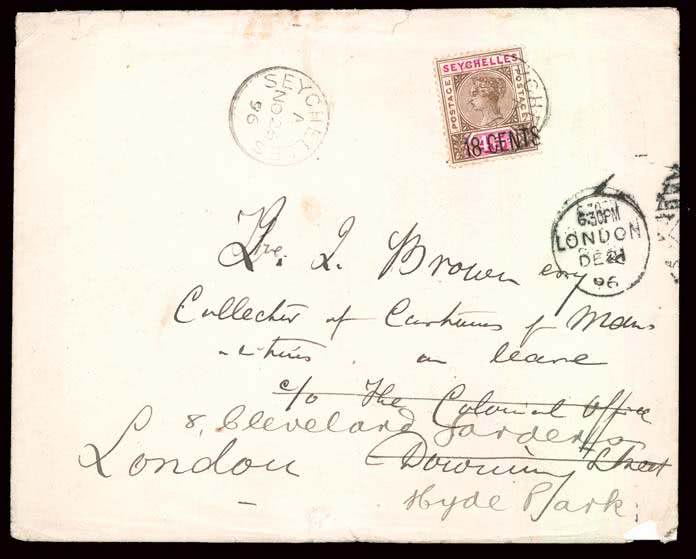 SEYCHELLES
A
NO 28
96
SEYCHELLES
POSTAGE
POSTAGE
18 CENTS
6.30PM
LONDON
DE 21
96
Brown esq
Collector of Customs of Mau
-ritius. on leave
c/o The Colonial Office
8, Cleveland Gardens
London Downing Street
Hyde Park.